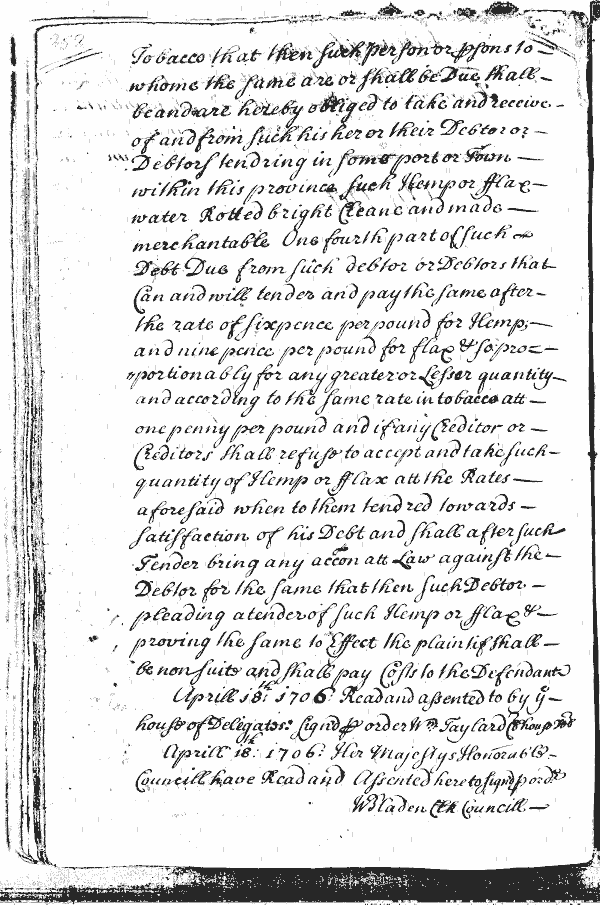 Tobacco that then such person or psons to
whome the same are or shall be Due shall
be and are hereby obliged to take and receive
of and from such his her or their Debtor or
Debtors tendring in some port or Town
within this province such Hemp or fflax
water Rotted bright Cleane and made
merchantable One fourth part of such
Debt Due from such debtor or Debtors that
Can and will tender and pay the same after
the rate of sixpence per pound for Hemp,
and nine pence per pound for flax & so pro=
portionably for any greater or Lesser quantity
and according to the same rate in tobacco att
one penny per pound and if any Creditor or
Creditors shall refuse to accept and take such
quantity of Hemp or fflax att the Rates
aforesaid when to them tendred towards
satisfaction of his Debt and shall after such
Tender bring any accon att Law against the
Debtor for the same that then such Debtor
pleading a tender of such Hemp or fflax &
proving the same to Effect the plaintif shall
be non suite and shall pay Costs to the Defendante
Aprill 18th: 1706: Read and assented to by ye
house of Delegates: signd p order Wm Taylard
Aprill 18th: 1706: Her Majestys Honorable
Councill have Read and Assented hereto signd p ordr
WBladen Clk Councill